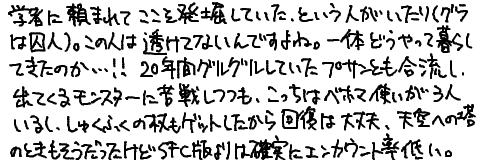 学者に頼まれてここを発掘していた、という人がいたり(グラ
は囚人)。この人は透けてないんですよね。一体どうやって暮らし
てきたのか…!! 20年間グルグルしていたプサンとも合流し、
出てくるモンスターに苦戦しつつも、こっちはベホマ使いが3人
いるし、しゅくふくの杖もゲットしたから回復は大丈夫、天空への塔
のときもそうだったけどSFC版よりは確実にエンカウント率低い。